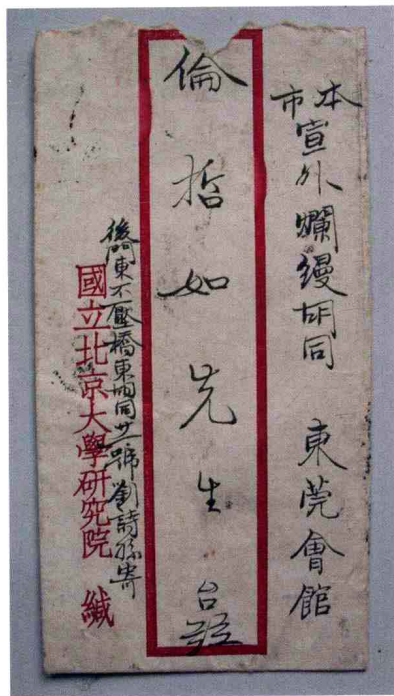 本市宣外爛縵胡同 東莞會館
倫哲如先生台啟
後門東不壓橋東胡同廿一號劉詩孫寄
國立北京大學研究院 緘